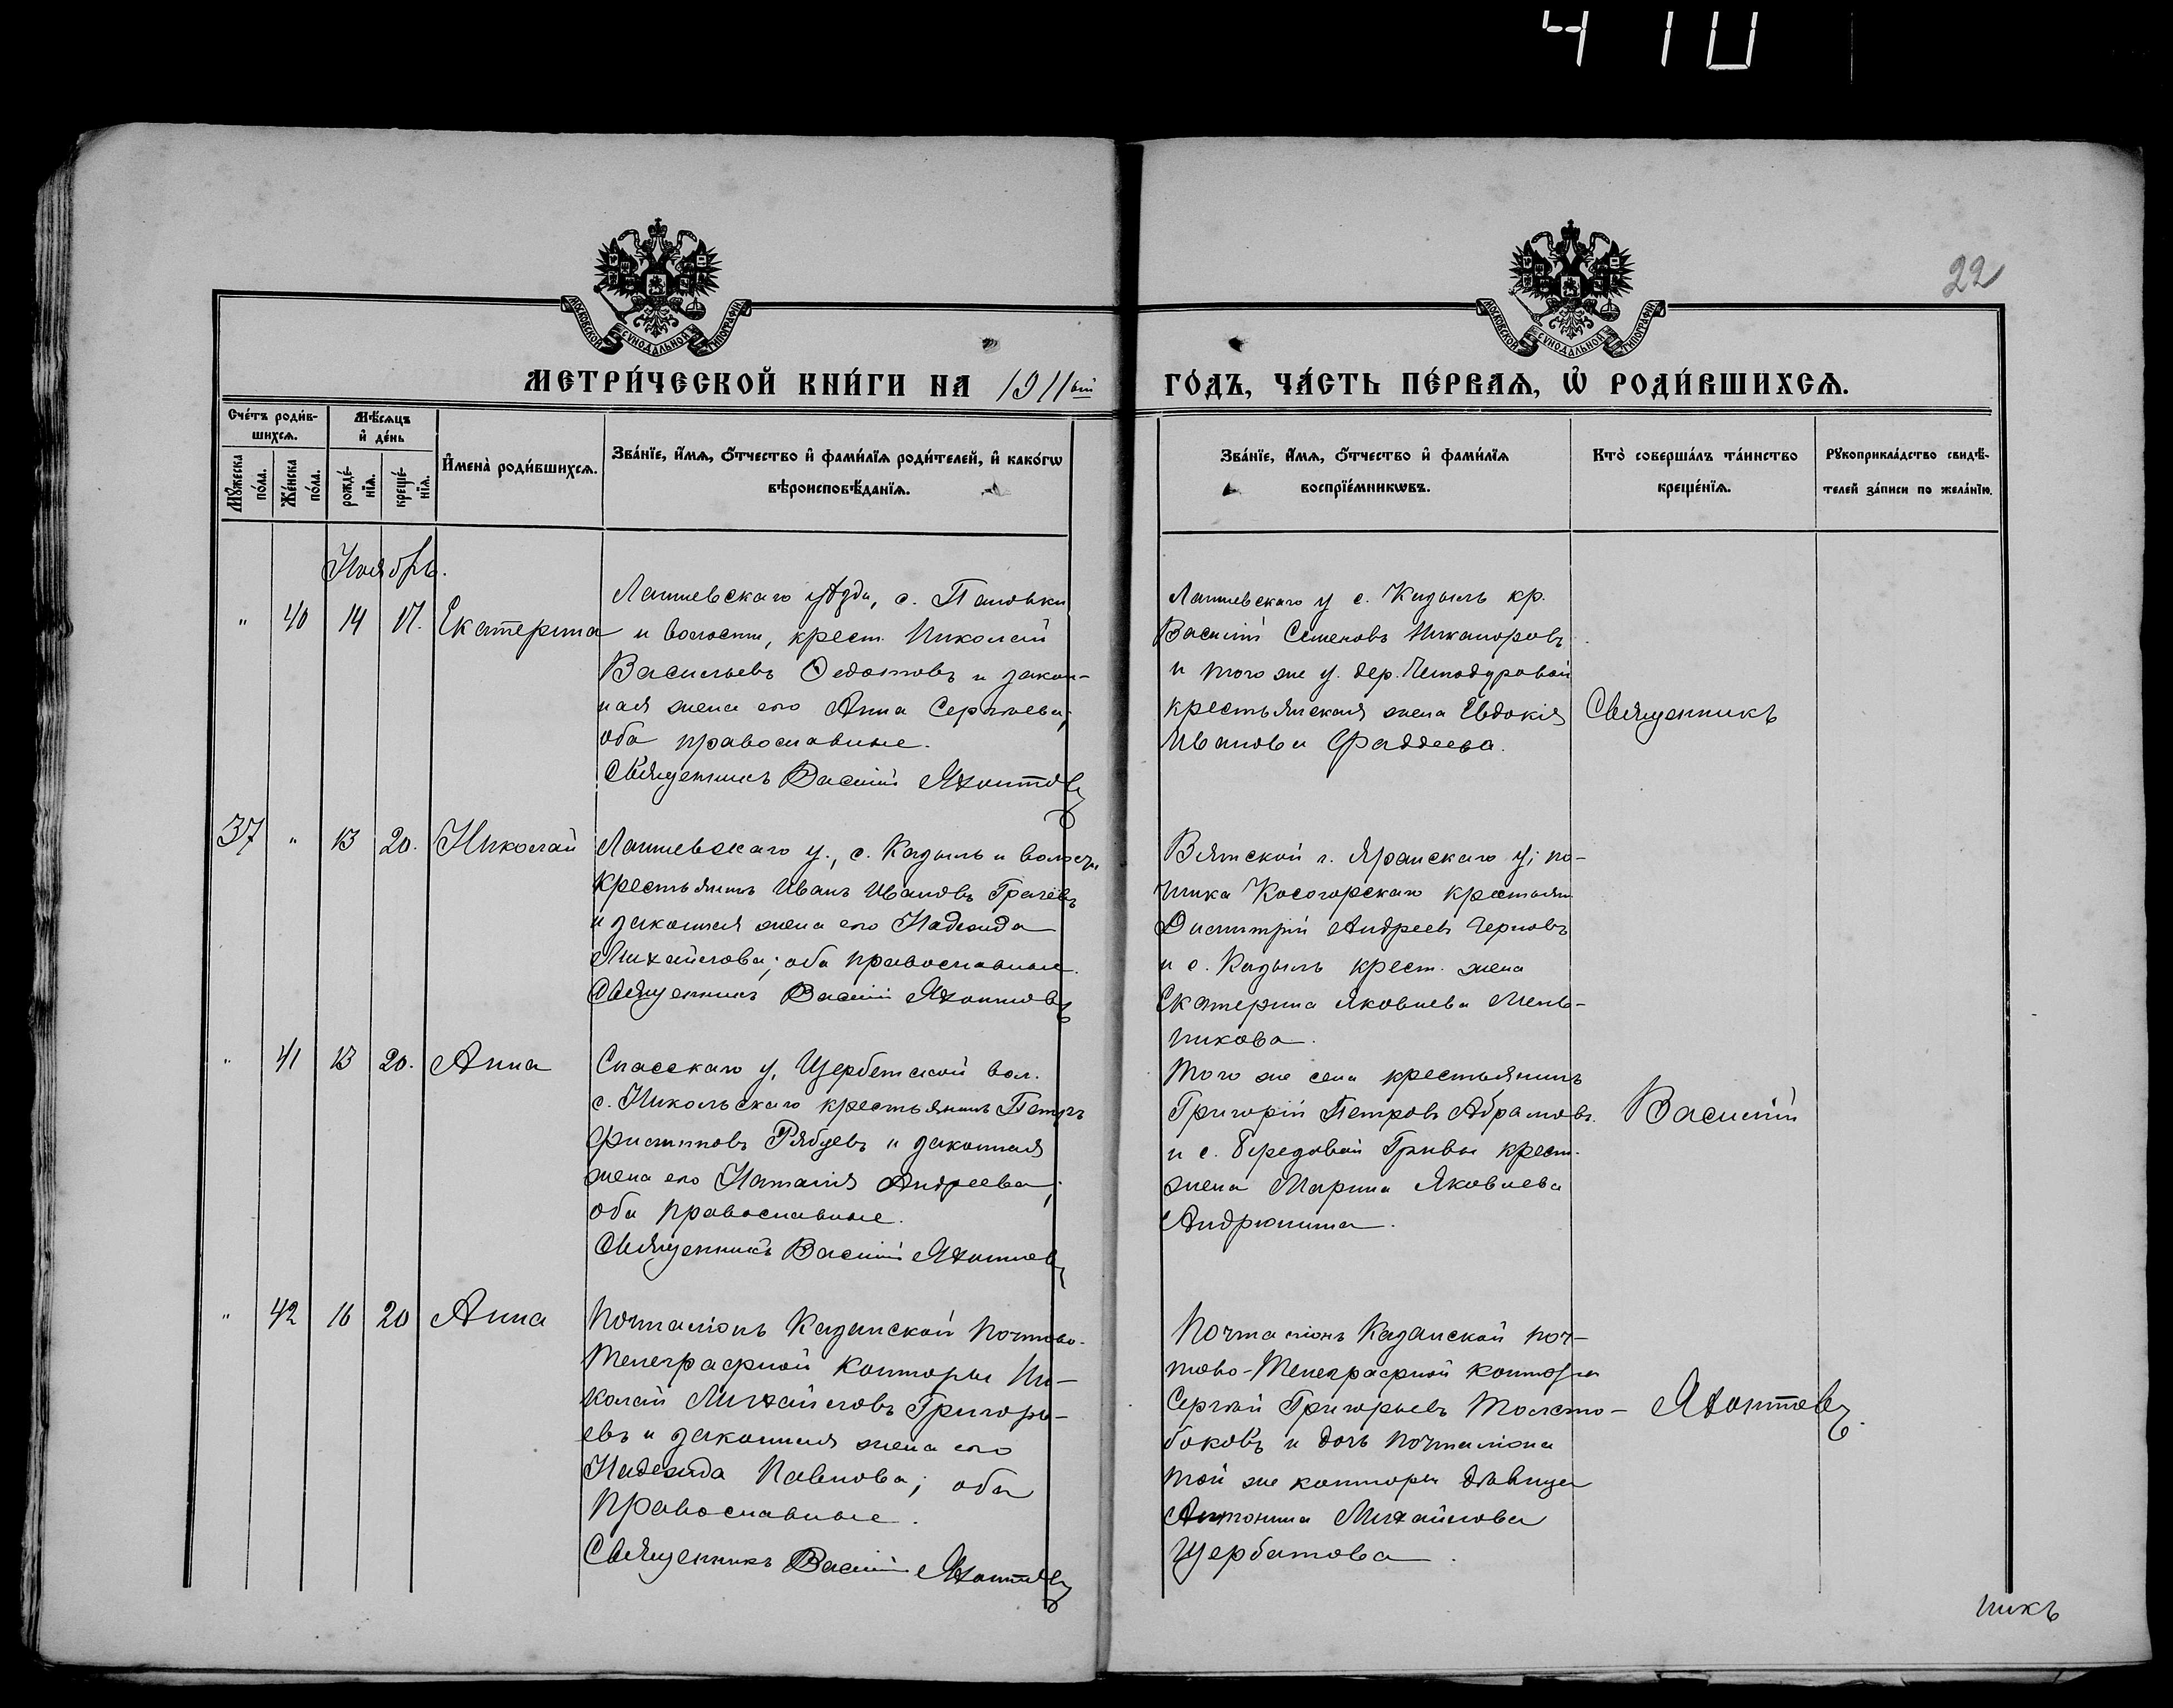 410
22
МОСКОВСКОЙ СУНОДАЛЬНОЙ ТИПОГРАФІИ
МОСКОВСКОЙ СУНОДАЛЬНОЙ ТИПОГРАФІИ
МЕТРИ́ЧЕСКОЙ КНИ́ГИ НА 1911ый ГО́ДЪ, ЧА́СТЬ ПЕ́РВАѦ, Ѡ҆ РОДИ́ВШИХСѦ.
Сче́тъ роди́в-
шихсѧ.
Мѣ́сѧцъ
и҆ де́нь
Мꙋ́жеска
по́ла.
Же́нска
по́ла.
рожде́-
нїѧ.
креще́-
нїѧ.
И҆мена̀ роди́вшихсѧ.
Зва́нїе, и҆́мѧ, ѻ҆́тчество и҆ фами́лїѧ роди́телей, и҆ како́гѡ
вѣроисповѣ́данїѧ.
Зва́нїе, и҆́мѧ, ѻ҆́тчество и҆ фами́лїѧ
воспрїе́мникѡвъ.
Кто̀ соверша́лъ та́инство
креще́нїѧ.
Рꙋкоприкла́дство свидѣ́-
телей за́писи по жела́нїю.
Ноябрь.
" 40 14 17. Екатерина
Лаишевскаго уѣзда, с. Пановки
и волости, крест. Николай
Васильевъ Ѳедотовъ и закон-
ная жена его Анна Сергѣева;
оба православные.
Священникъ Василій Яхонтовъ
Лаишевскаго у с. Кадыль кр.
Василій Семеновъ Никаноровъ
и того же у. дер. Чемодуровой
крестьянская жена Евдокія
Иванова Фаддеева.
Священникъ
37 " 13 20. Николай
Лаишевскаго у., с. Кадыль и волости
крестьянинъ Иванъ Ивановъ Грачёвъ
и законная жена его Надежда
Михайлова; оба православные.
Священникъ Василій Яхонтовъ
Вятской г. Яранскаго у; по-
чинка Косогорскаго крестьян.
Димитрій Андреевъ Черновъ
и с. Кадыль крест. жена
Екатерина Яковлева Мень-
шикова.
" 41 13 20. Анна
Спасскаго у, Щербетской вол.
с. Никольскаго крестьянинъ Петръ
Филипповъ Рябцевъ и законная
жена его Наталія Андреева;
оба православные.
Священникъ Василій Яхонтовъ
Того же села крестьянинъ
Григорій Петровъ Абрамовъ.
и с. Бередовой Гривы крест.
жена Марина Яковлева
Андрюнина.
Василій
" 42 16 20 Анна
Почталіонъ Казанской Почтово-
Телеграфной Конторы Ни-
колай Михайловъ Григорь-
евъ и законная жена его
Надежда Павлова; оба
православные.
Священникъ Василій Яхонтовъ
Почталіонъ Казанской поч-
тово-Телеграфной конторы
Сергѣй Григорьевъ Толсто-
боковъ и дочь почталіона
той же конторы дѣвица
Антонина Михайлова
Щербатова.
Яхонтовъ.
никъ